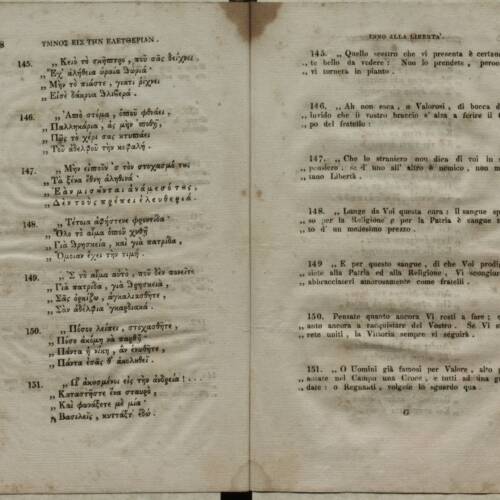 8 ΥΜΝΟΣ ΕΙΣ ΤΗΝ ΕΛΕΥΘΕΡΙΑΝ.
145. „ Κειὸ τὸ σκῆπτρο, ποῦ σᾶς δείχνει
„ Ἔχ' ἀλήθεια ὡραία θωριά·
„ Μὴν τὸ πιάστε, γιατὶ ρίχνει
„ Εἰσὲ δάκρυα θλιβερά.
146. „ Ἀπὸ στόμα, ὁποῦ φθονάει,
„ Παλληκάρια, ἂς μὴν 'πωθῇ,
„ Πῶς τὸ χέρι σας κτυπάει
„ Τοῦ ἀδελφοῦ τὴν κεφαλή.
147. „ Μὴν εἰποῦν 'ς τὸν στοχασμό τους
„ Τὰ ξένα ἔθνη ἀληθινά·
„ Ἐὰν μισοῦνται ἀνάμεσό τους,
„ Δὲν τοὺς πρέπει ἐλευθεριά.
148. „ Τέτοια ἀφήστενε φροντίδα·
„ Ὅλο τὸ αἷμα ὁποῦ χυθῇ
„ Γιὰ θρησκεία, καὶ γιὰ πατρίδα,
„ Ὅμοιαν ἔχει τὴν τιμή.
149. „ Σ τὸ αἷμα αὐτό, ποῦ δὲν πονεῖτε
„ Γιὰ πατρίδα, γιὰ θρησκεία,
„ Σᾶς ὁρκίζω, ἀγκαλισθῆτε,
„ Σὰν ἀδέλφια γκαρδιακά.
150. „ Πόσο λείπει, στοχασθῆτε,
„ Πόσο ἀκόμη νὰ παρθῇ·
„ Πάντα ἡ νίκη, ἂν ἑνωθῆτε,
„ Πάντα ἐσᾶς θ' ἀκολουθεῖ.
151. „ Ὦ ἀκουσμένοι εἰς τὴν ἀνδρεία! . . .
„ Καταστῆστε ἕνα σταυρό,
„ Καὶ φωνάξετε μὲ μία·
„ Βασιλεῖς, κυττάξτ' ἐδώ.
INNO ALLA LIBERTA'.
145. „ Quello scettro che vi presenta è
„ te bello da vedere: Non lo prendete,
„ vi tornerà in pianto.
146. „ Ah non esca, o Valorosi, di bocca
„ livido che il vostro braccio s'alza a ferire il
„ po del fratello:
147. „ Che lo straniero non dica di voi in
„ pensiero: se d'uno all'altro è nemico, non
„ tano Libertà.
148. „ Lunge da Voi questa cura: Il sangue
„ so per la Religione e per la Patria è sangue
„ to d'un medesimo prezzo.
149 „ E per questo sangue, di che Voi
„ siete alla Patria ed alla Religione, Vi
„ abbracciarvi amorosamente come fratelli.
150. Pensate quanto ancora Vi resti a fare:
„ anto ancora a racquistare del Vostro. Se Vi
„ rete uniti, la Vittoria sempre vi seguirà.
151. „ O Uomini già famosi per Valore,
„ antate nel Campo una Croce, e tutti ad una
„ date: o Regnanti, volgete lo sguardo qua.
G